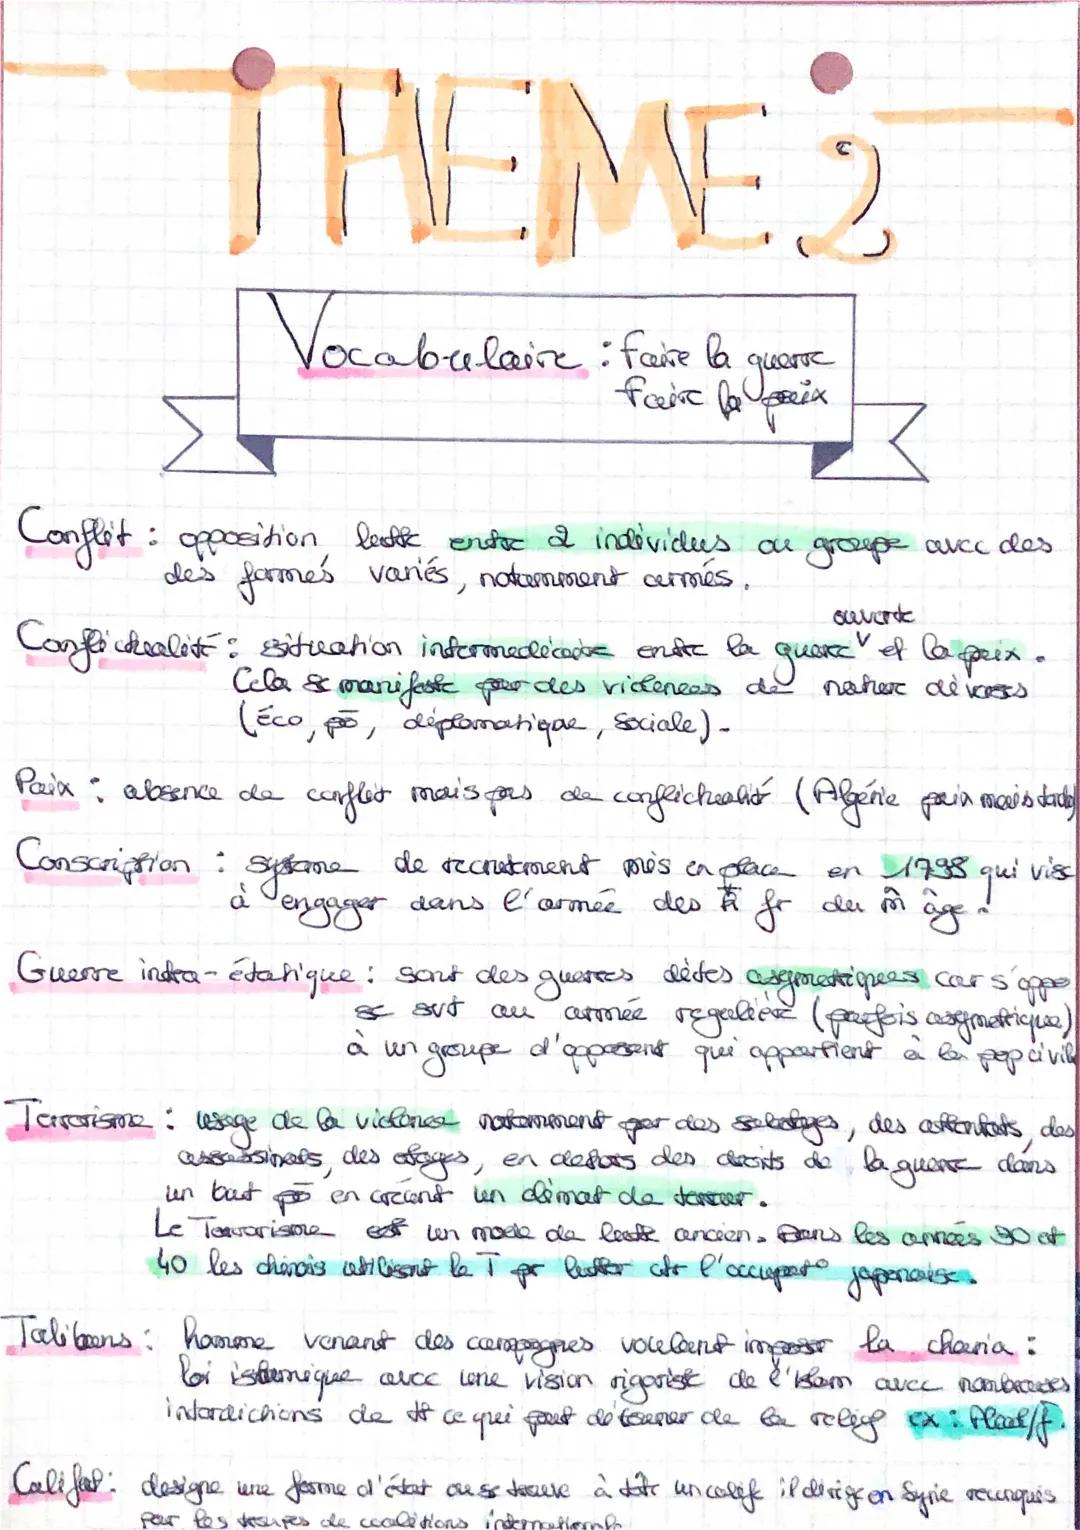 THEME 2
Vocabulaire : faire la guerre
faire la paix
Conflit : opposition, lutte entre 2 individus ou groupe avec des
des formes variés, notamment armés.
ouverte
Conflictualité : situation intermédiaire entre la guerre v et la paix.
Cela se manifeste par des violences de nature diverses
(éco, pō, diplomatique, sociale).
Paix : absence de conflit mais pas de conflictualité (Algérie paix mais
Conscription : système de recrutement mis en place en 1798 qui vise
à engager dans l'armée des fr du m̂ âge.
Guerre intra-étatique : sont des guerres dites asymetriques car s'oppo
se svt au armée regulière (parfois asymetrique)
à un groupe d'opposant qui appartient à la pop civile
Terrorisme : usage de la violence notamment par des sabotages, des attentats, des
assassinats, des otages, en dehors des droits de la guerre dans
un but pō en créant un climat de terreur.
Le Terrorisme est un mode de lutte ancien. Dans les années 30 et
40 les chinois utilisent le T pr lutter ctr l'occupat° japonaise.
Talibans : homme venant des campagnes voulant imposer la charia :
loi islamique avec une vision rigoriste de l'islam avec nombreuses
interdictions de tt ce qui peut détourner de la relig ex : Alcool/f.
Califat : designe une forme d'état ou se trouve à tête un calife il dirige en Syrie reconquis
par les troupes de coalitions